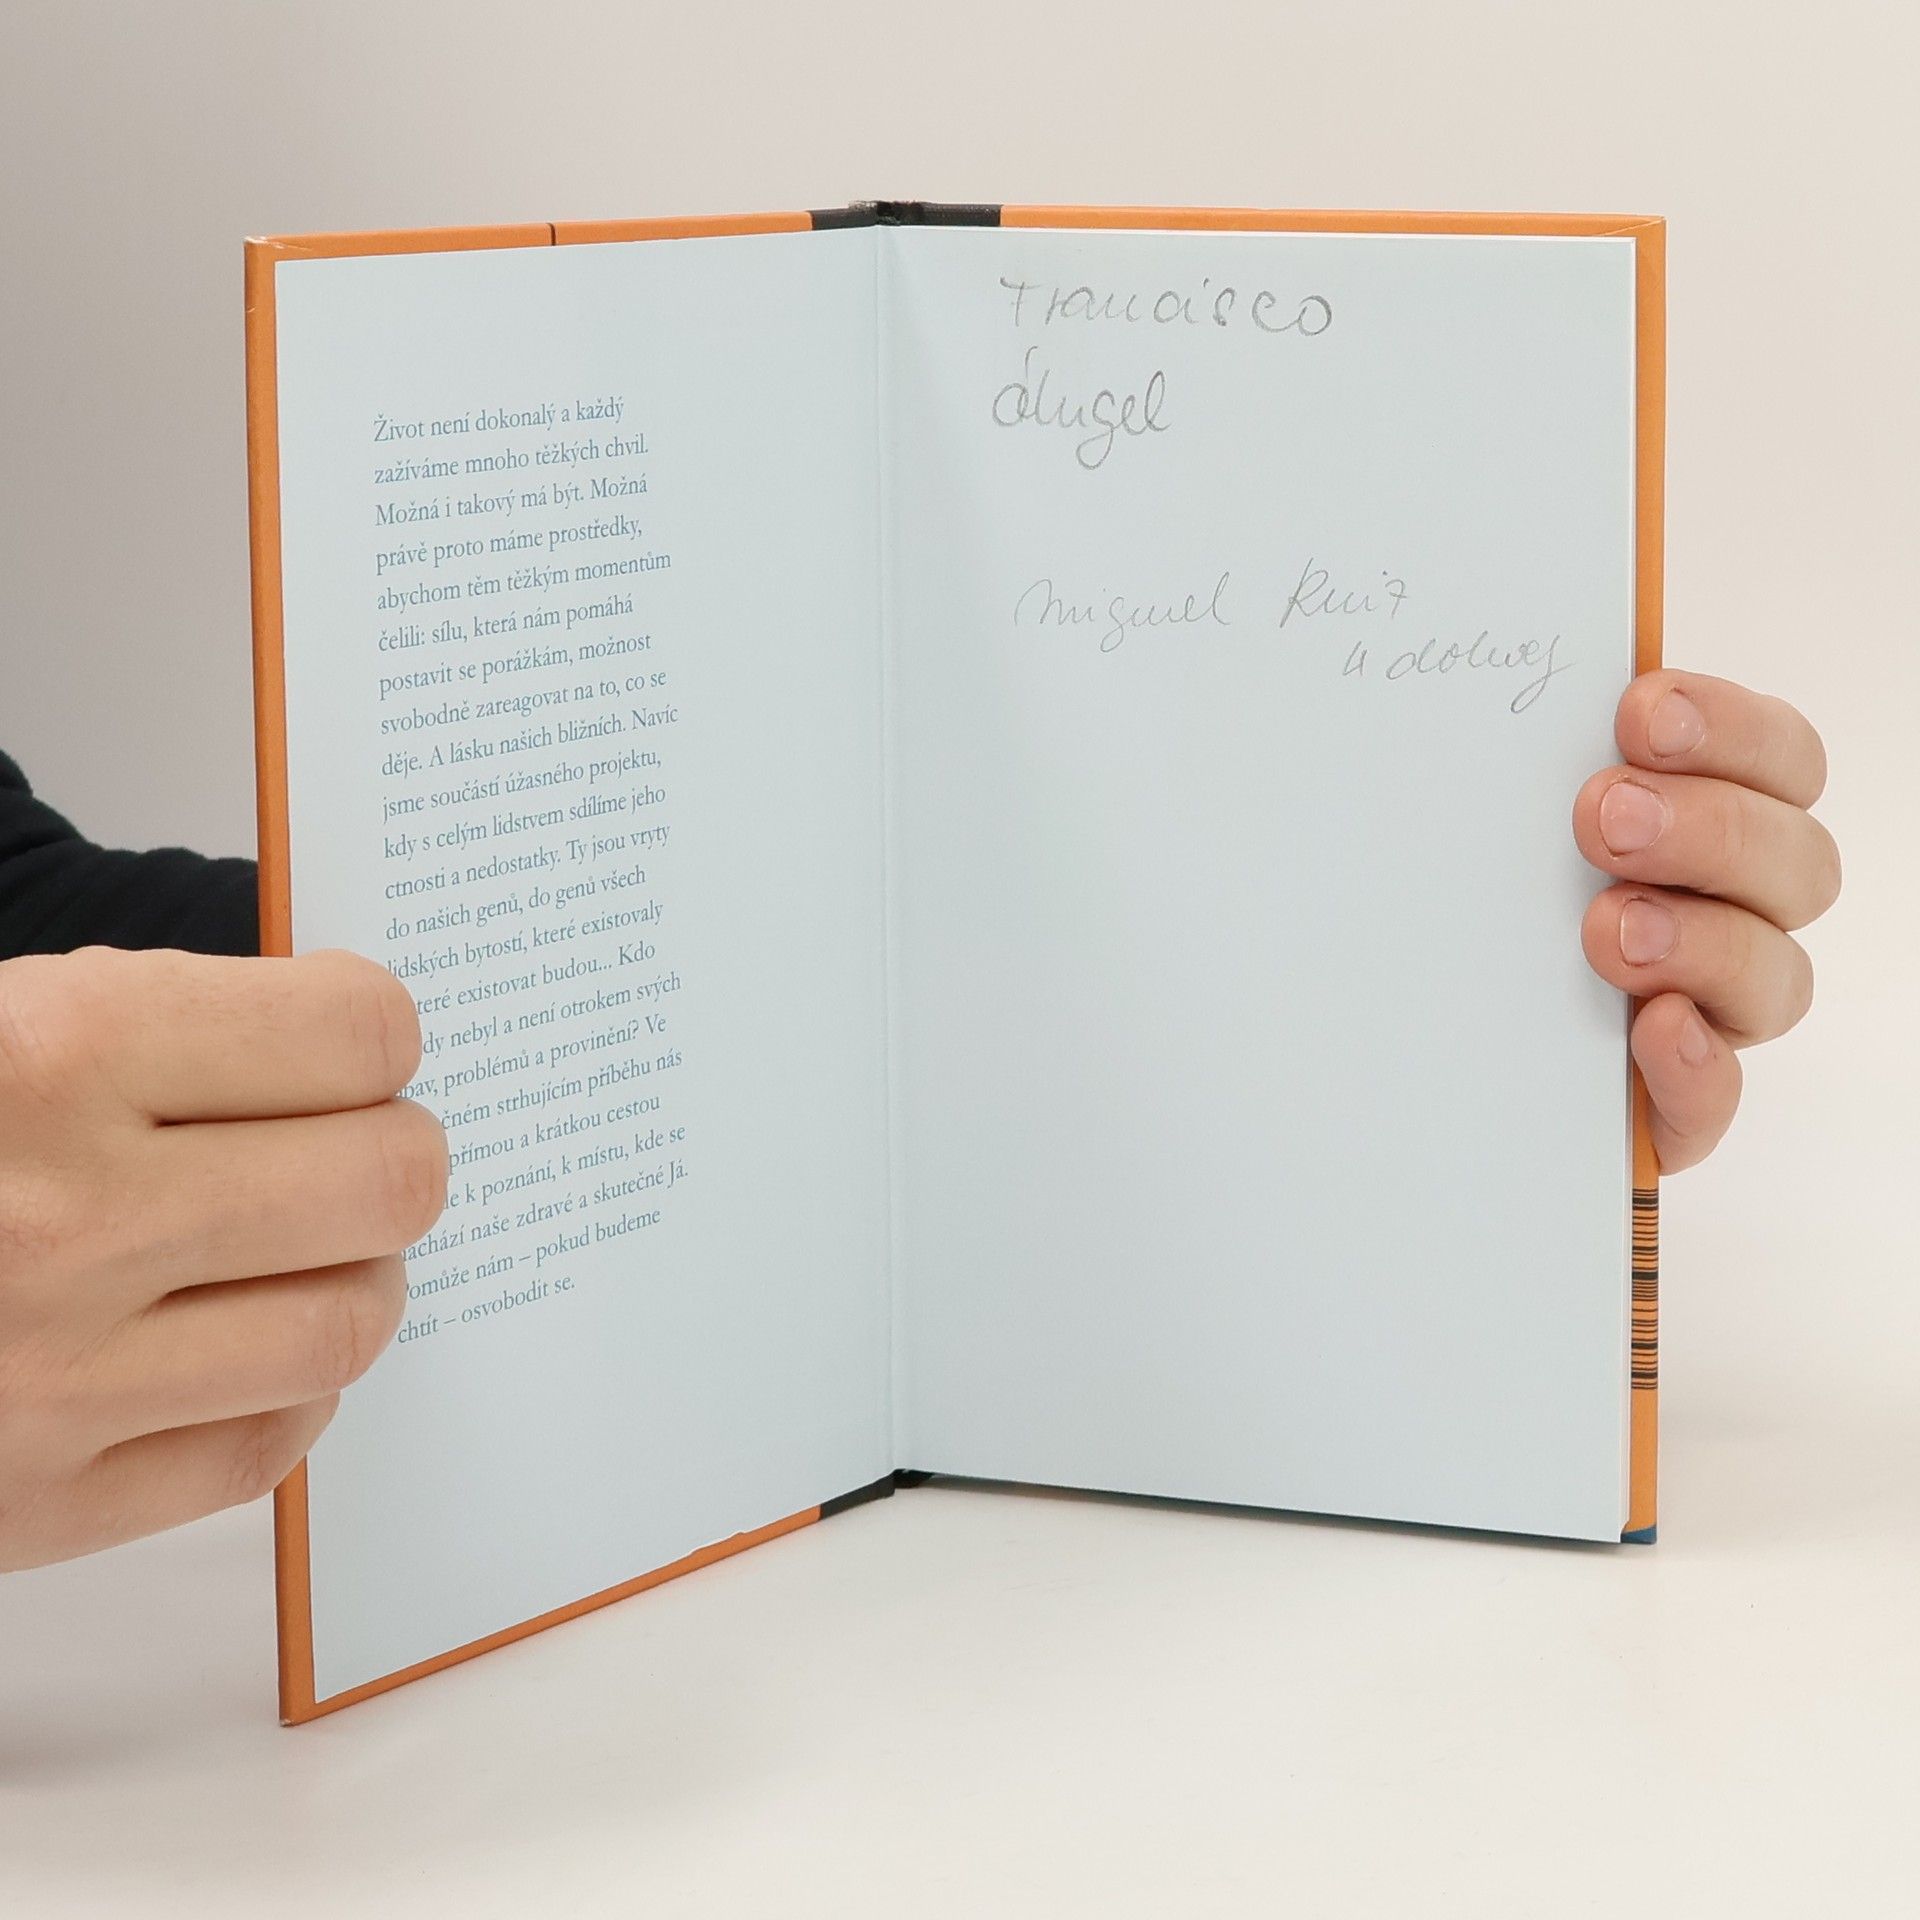 Život není dokonalý a každý
zažíváme mnoho těžkých chvil.
Možná i takový má být. Možná
právě proto máme prostředky,
abychom těm těžkým momentům
čelili: sílu, která nám pomáhá
postavit se porážkám, možnost
svobodně zareagovat na to, co se
děje. A lásku našich bližních. Navíc
jsme součástí úžasného projektu,
kdy s celým lidstvem sdílíme jeho
ctnosti a nedostatky. Ty jsou vryty
do našich genů, do genů všech
lidských bytostí, které existovaly
teré existovat budou... Kdo
dy nebyl a není otrokem svých
bav, problémů a provinění? Ve
čném strhujícím příběhu nás
přímou a krátkou cestou
le k poznání, k místu, kde se
achází naše zdravé a skutečné Já.
omůže nám – pokud budeme
chtít – osvobodit se.
Francisco
Ángel
Miguel Ruiz
4 dohody